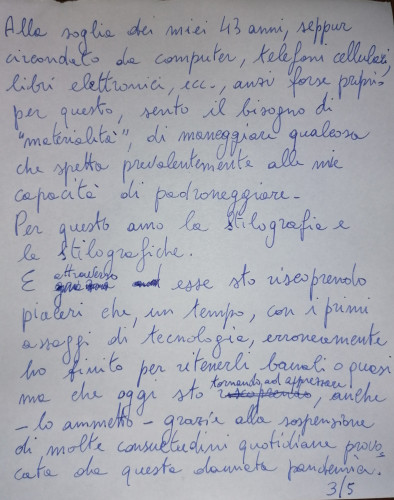 Alla soglia dei miei 43 anni, seppur
circondato da computer, telefoni cellulari,
libri elettronici, ecc., anzi forse proprio
per questo, sento il bisogno di
"materialità", di maneggiare qualcosa
che spetta prevalentemente alle mie
capacità di padroneggiare.
Per questo amo la stilografia e
le stilografiche.
E attraverso esse sto riscoprendo
piaceri che, un tempo, con i primi
assaggi di tecnologia, erroneamente
ho finito per ritenerli banali o quasi
ma che oggi sto tornando ad apprezzare, anche
- lo ammetto - grazie alla sospensione
di molte consuetudini quotidiane provo_
cata da questa dannata pandemia.
3/5